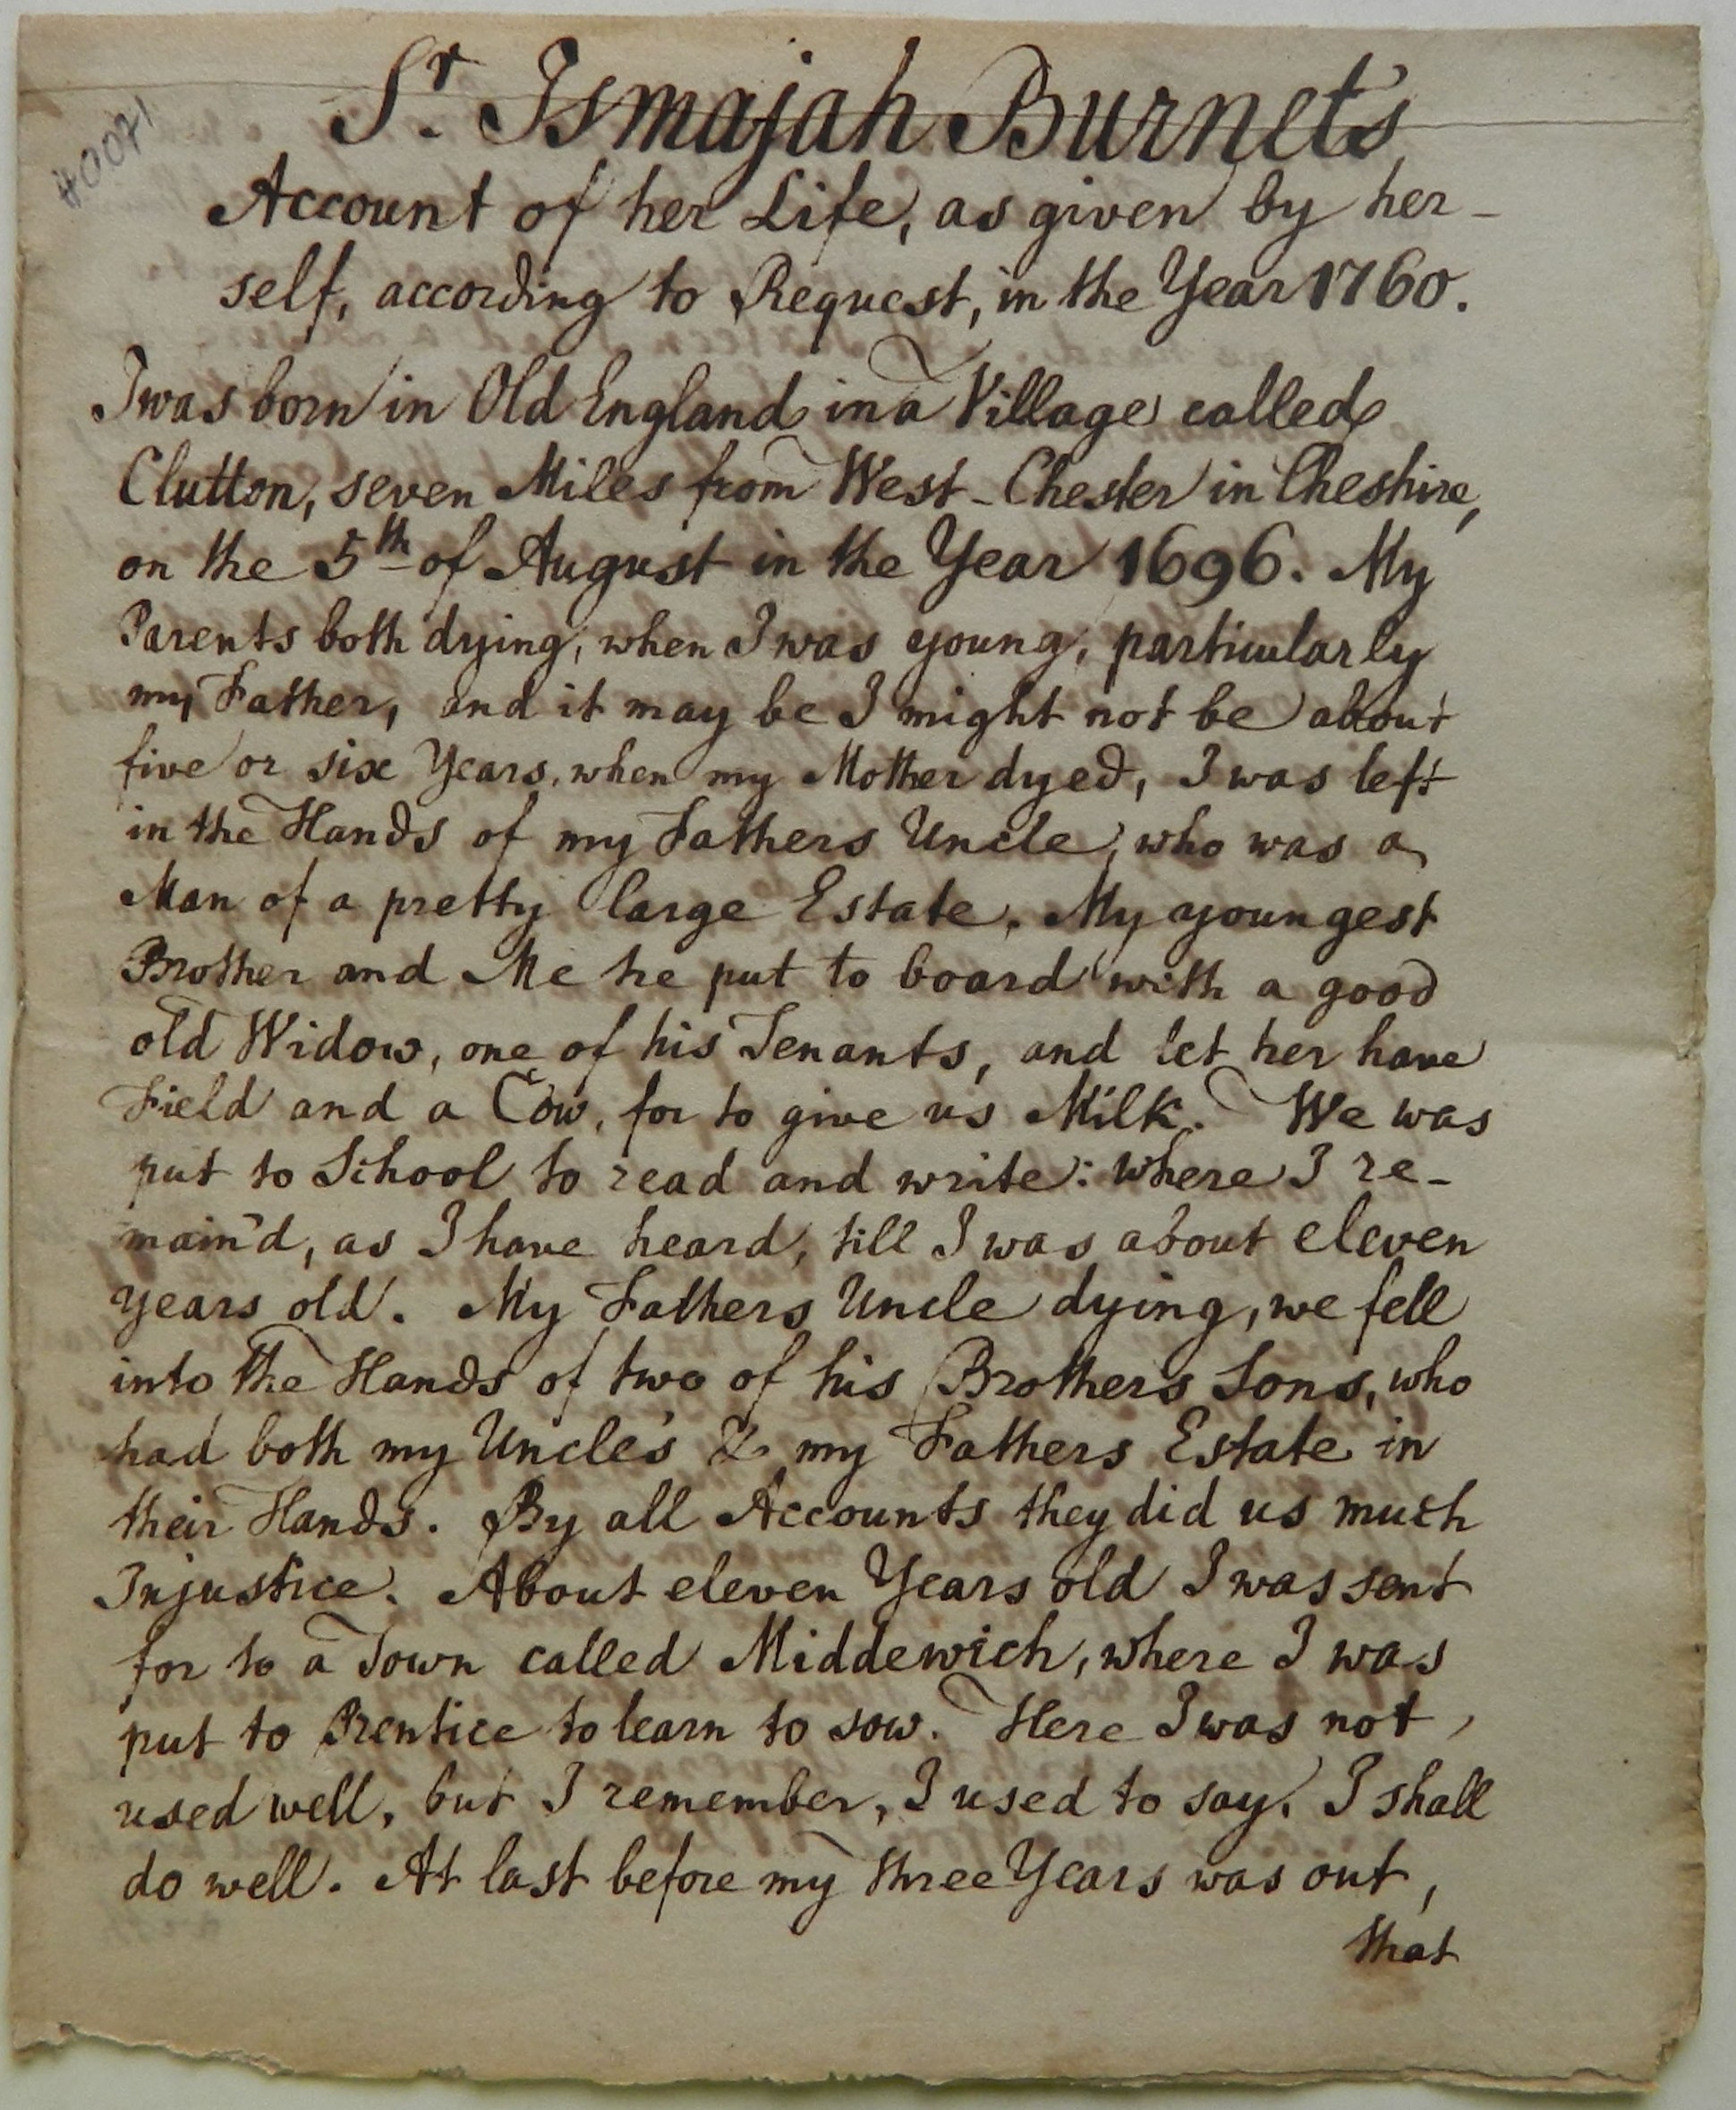 40071
Sr. Ismajah Burnets
Account of her Life, as given by her-
self, according to Request, in the Year 1760.
I was born in Old England in a Village called
Clutton, seven Miles from West-Chester in Cheshire,
on the 5th of August in the Year 1696. My
Parents both dying, when I was young, particularly
my Father, and it may be I might not be about
five or six Years, when my Mother dyed, I was left
in the Hands of my Fathers Uncle, who was a
Man of a pretty large Estate. My youngest
Brother and Me he put to board with a good
old Widow, one of his Tenants, and let her have
Field and a Cow, for to give us Milk. We was
put to School to read and write: where I re-
main'd, as I have heard, till I was about eleven
years old. My Fathers Uncle dying, we fell
into the Hands of two of his Brothers Sons, who
had both my Uncle's & my Fathers Estate in
their Hands. By all Accounts they did us much
Injustice. About eleven Years old I was sent
for to a Town called Middewich, where I was
put to Prentice to learn to sow. Here I was not
used well, but I remember, I used to say, I shall
do well. At last before my three Years was out,
that